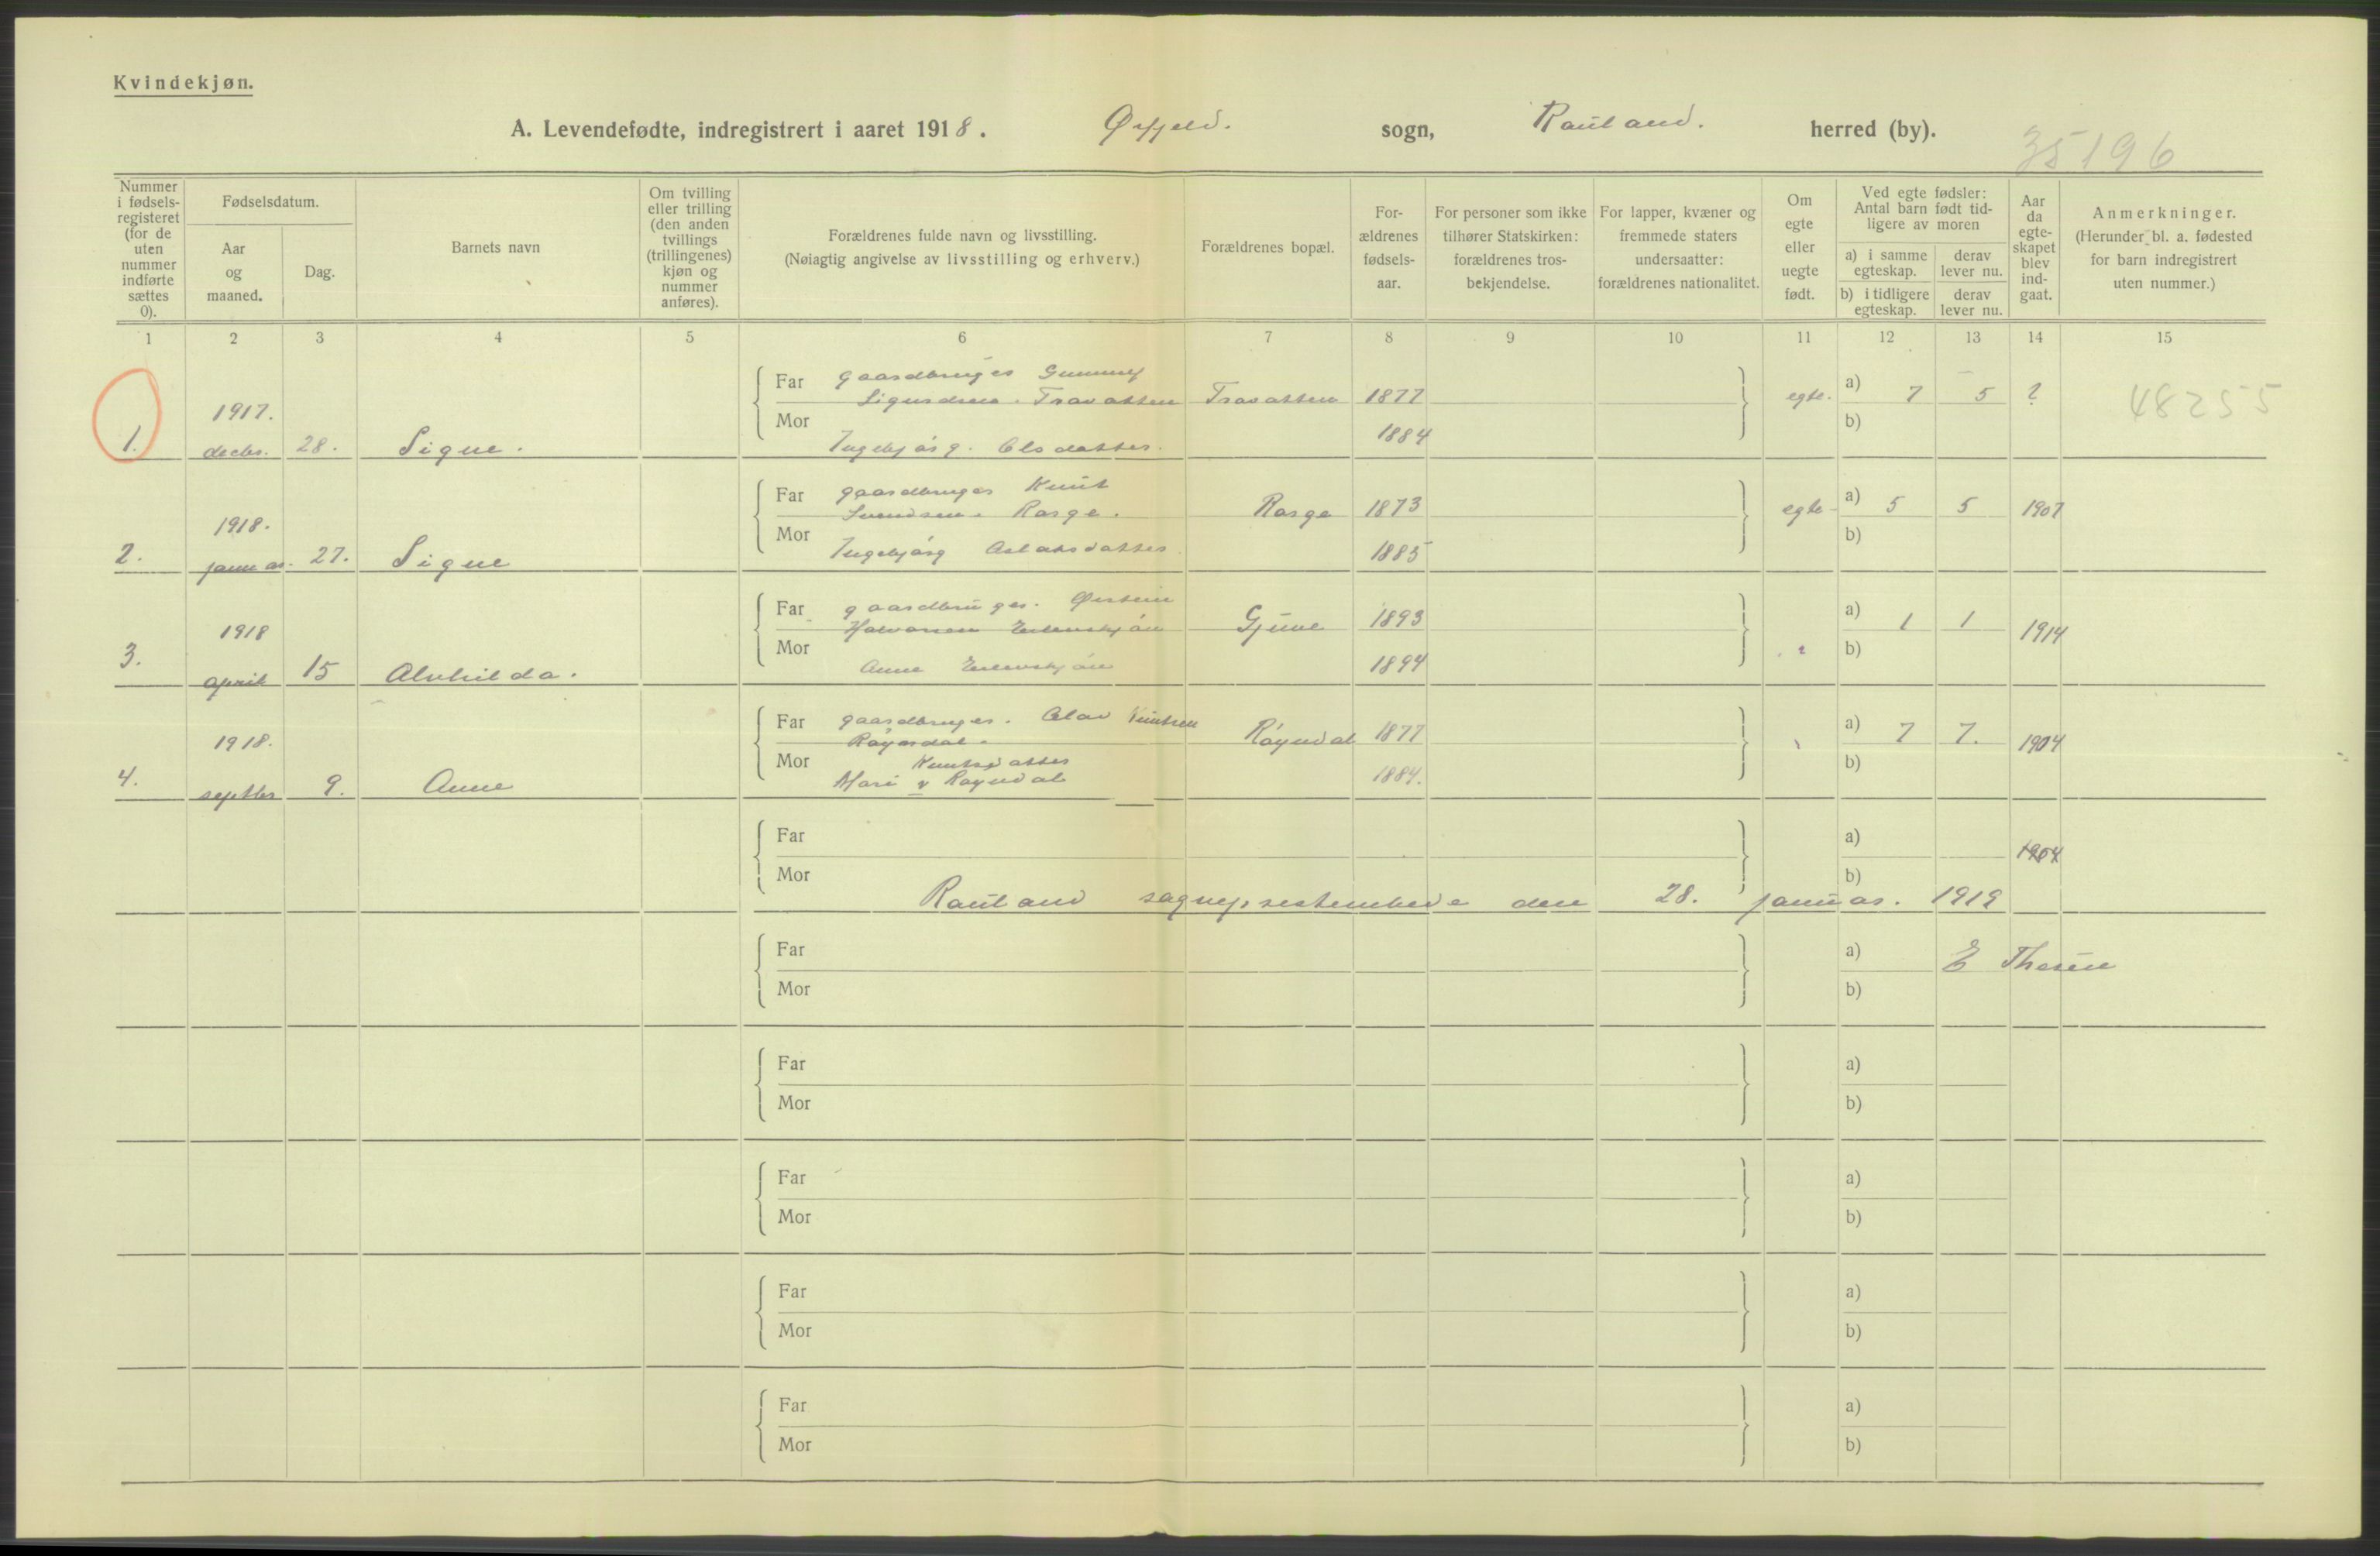 Kvindekjøn.
A. Levendefødte, indregistrert i aaret 1918. Øifjeld. sogn, Rauland. herred (by).
35196
Nummer i fødsels-registeret (for de uten nummer indførte sættes 0).
Fødselsdatum.
Aar og maaned.
Dag.
Barnets navn
Om tvilling eller trilling (den anden tvillings (trillingenes) kjøn og nummer anføres).
Forældrenes fulde navn og livsstilling.
(Nøiagtig angivelse av livsstilling og erhverv.)
Forældrenes bopæl.
For-ældrenes fødsels-aar.
For personer som ikke tilhører Statskirken: forældrenes tros-bekjendelse.
For lapper, kvæner og fremmede staters undersaatter: forældrenes nationalitet.
Om egte eller uegte født.
Ved egte fødsler: Antal barn født tid-ligere av moren
a) i samme egteskap.
derav lever nu.
b) i tidligere egteskap.
derav lever nu.
Aar da egte-skapet blev ind-gaat.
Anmerkninger.
(Herunder bl. a. fødested for barn indregistrert uten nummer.)
1 2 3 4 5 6 7 8 9 10 11 12 13 14 15
Far gaardbruger Gunnulf
1917. Sigurdsen Travatten Travatten 1877 egte. a) 7 5 ? 48255
Mor b)
1. decbr. 28. Signe. Ingebjørg Olsdatter. 1884
Far gaardbruger Knut
1918. Svendsen Rorge. Rorge 1873 egte a) 5 5 1907
Mor b)
2. januar. 27. Signe Ingebjørg Aslaksdatter 1885
Far gaardbruger. Øistein
1918 Halvorsen Gjuve 1893 a) 1 1 1914
Mor b)
3. april 15 Alvhilda. Anne 1894
Far gaardbruger. Olav Knutsen
1918. Røyndal. Røyndal 1877 a) 7 7. 1904
Mor Knutsdatter b)
4. septbr 9. Anne Mari Røyndal 1884.
Far a)
1904
Mor b)
Rauland sogneprestembede den 28. januar. 1919
Far a)
E Thesen
Mor b)
Far a)
Mor b)
Far a)
Mor b)
Far a)
Mor b)
Far a)
Mor b)